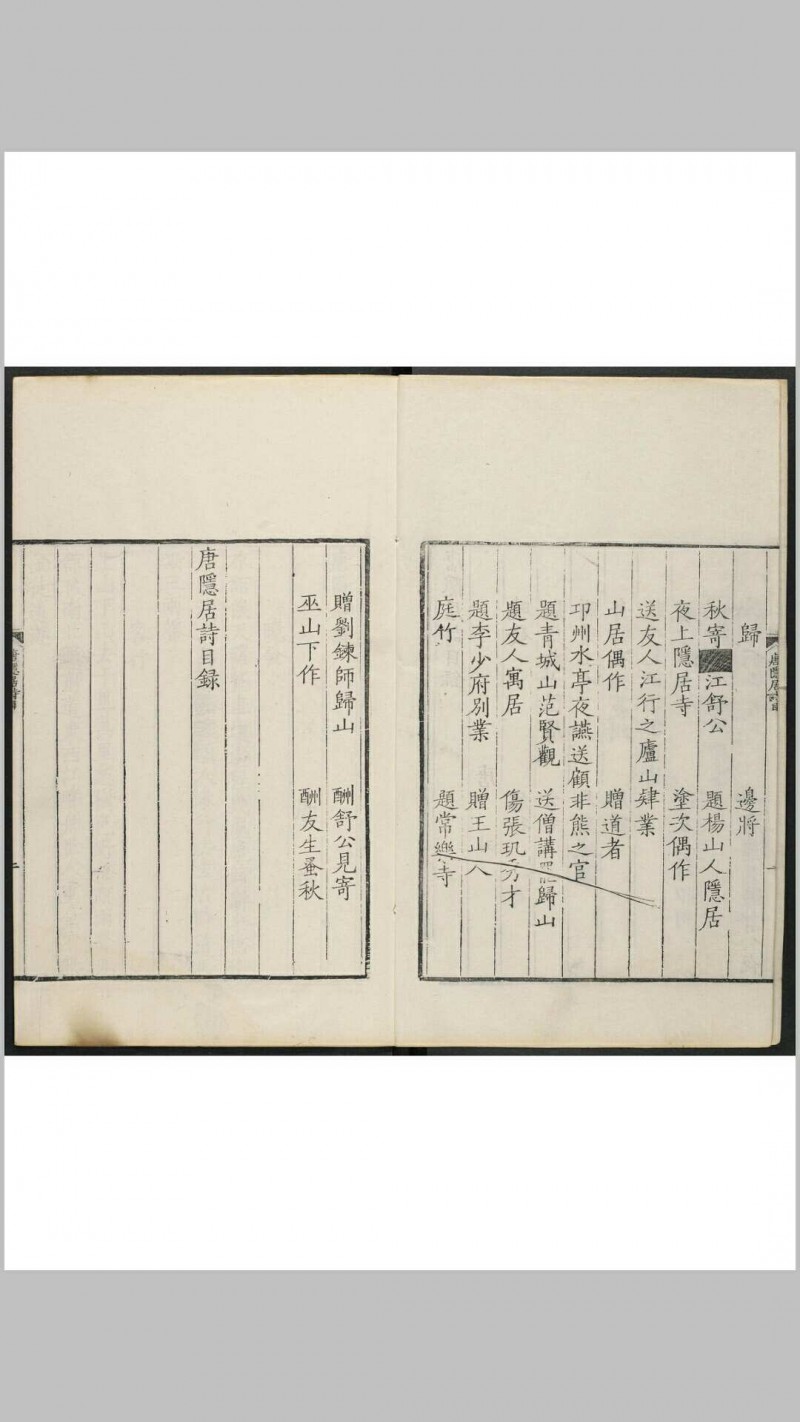 歸 邊將
秋寄江舒公 題楊山人隱居
夜上隱居寺 塗次偶作
送友人江行之廬山肄業
山居偶作 贈道者
邛州水亭夜讌送顧非熊之官
題青城山范賢觀 送僧講罷歸山
題友人寓居 傷張玘秀才
題李少府別業 贈王山人
庭竹 題常樂寺
贈劉鍊師歸山 酬舒公見寄
巫山下作 酬友生蚤秋
唐隱居詩目録